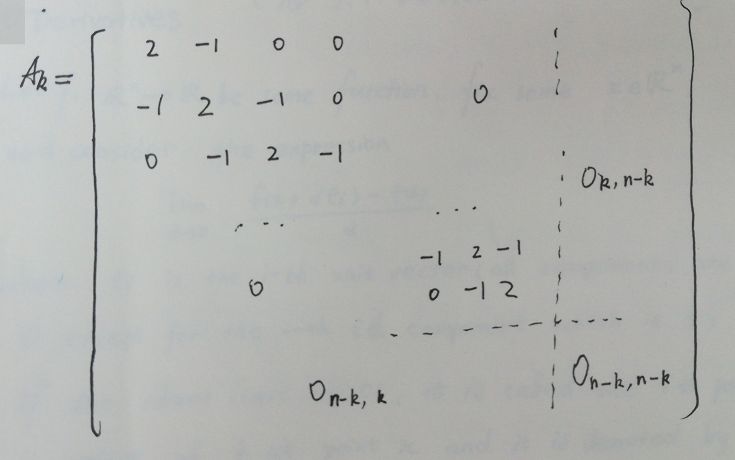 2 -1 0 0
A_k =
-1 2 -1 0 0
0 -1 2 -1
0_{k, n-k}
... ...
-1 2 -1
0 0 -1 2
0_{n-k, k} 0_{n-k, n-k}